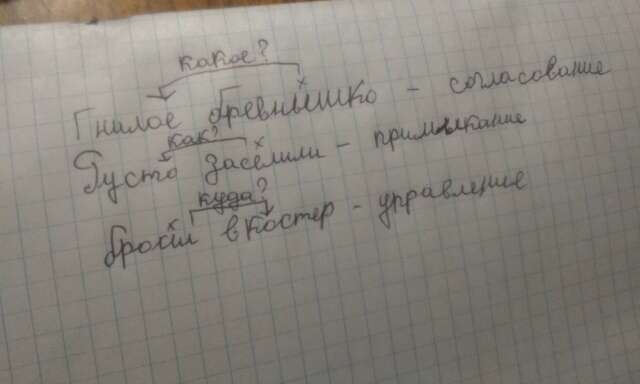 какое?
Гнилое бревнышко - согласование
как?
Густо заселили - примыкание
куда?
бросил в костер - управление